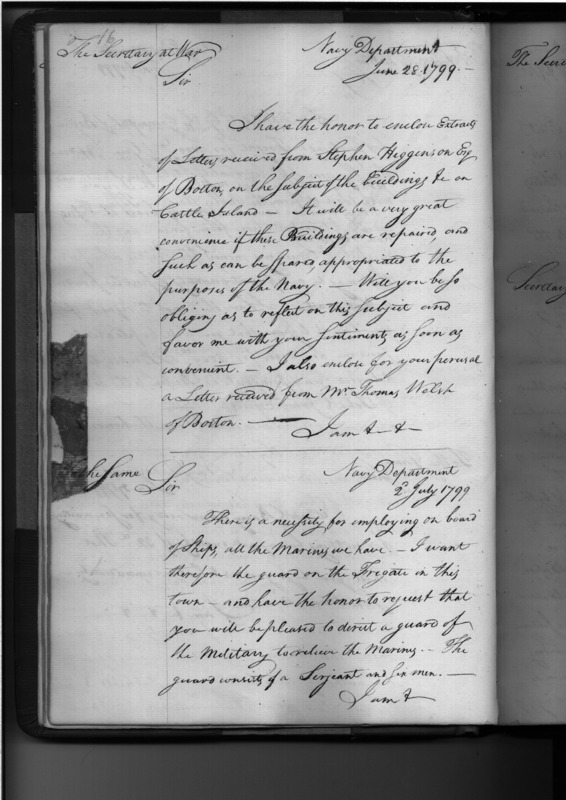 16
The Secretary at War
Navy Department
June 28. 1799. —
Sir
I have the honor to enclose Extracts
of Letters received from Stephen Higgenson Esq
of Boston, on the subject of the Buildings &c on
Castle Island — It will be a very great
convenience if these Buildings are repaired, and
such as can be spared, appropriated to the
purposes of the Navy. — Will you be so
obliging as to reflect on this subject and
favor me with your sentiments as soon as
convenient. — I also enclose for your perusal
a Letter received from Mr. Thomas Welsh
of Boston. —
I am & — &
the Same
Navy Department
2d July 1799
Sir
There is a necessity for employing on board
of Ships, all the Marines we have — I want
therefore the guard on the Frigate in this
town — and have the honor to request that
you will be pleased to direct a guard of
the Military to relieve the Marines. — The
guard consists of a Serjeant and six men. —
I am &
The Secre
Secretary